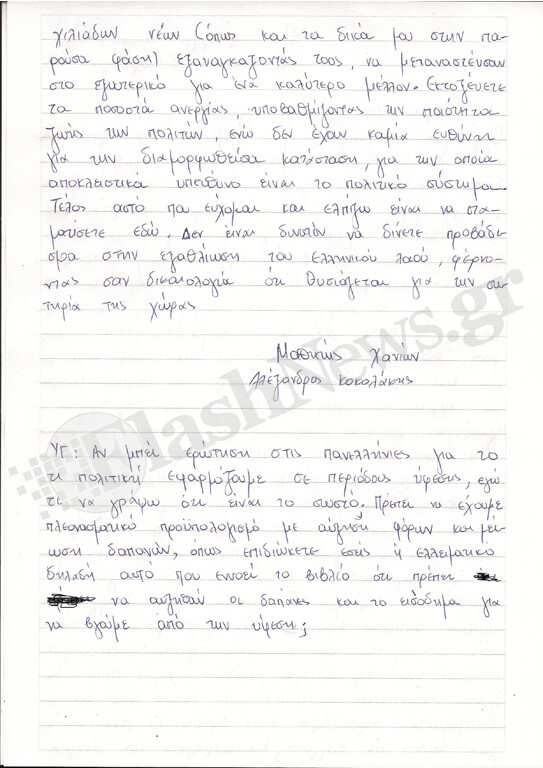 χιλιάδων νέων (όπως και τα δικά μου στην πα-
ρούσα φάση) εξαναγκάζοντάς τους, να μεταναστεύσουν
στο εξωτερικό για ένα καλύτερο μέλλον. Εκτοξεύετε
τα ποσοστά ανεργίας, υποβαθμίζοντας την ποιότητα
ζωής των πολιτών, ενώ δεν έχουν καμία ευθύνη
για την διαμορφωθείσα κατάσταση, για την οποία
αποκλειστικά υπεύθυνο είναι το πολιτικό σύστημα.
Τέλος αυτό που εύχομαι και ελπίζω είναι να στα-
ματήσετε εδώ. Δεν είναι δυνατόν να δίνετε προβάδι-
σμα στην εξαθλίωση του ελληνικού λαού, φέρνο-
ντας σαν δικαιολογία ότι θυσιάζεται για την σω-
τηρία της χώρας
Μαθητής Χανίων
Αλέξανδρος Κοκολάκης
ΥΓ: Αν μπει ερώτηση στις πανελλήνιες για το
τι πολιτική εφαρμόζουμε σε περιόδους ύφεσης, εγώ
τι να γράψω ότι είναι το σωστό. Πρέπει να έχουμε
πλεονασματικό προϋπολογισμό με αύξηση φόρων και μεί-
ωση δαπανών, όπως επιδιώκετε εσείς ή ελλειματικό
δηλαδή αυτό που εννοεί το βιβλίο ότι πρέπει
να αυξηθούν οι δαπάνες και το εισόδημα για
να βγούμε από την ύφεση;
FlashNews.gr